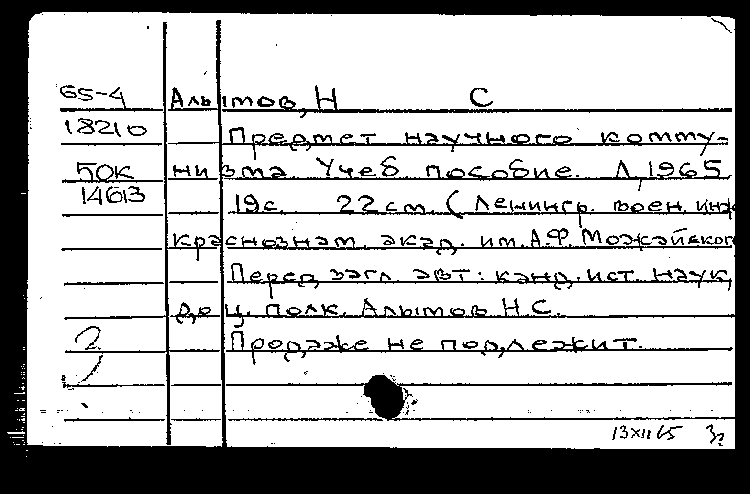 65-4 Алымов, Н С
18210 Предмет научного комму-
50к низма. Учеб. пособие. Л, 1965
14613 19с. 22см. (Ленингр. воен. инж
краснознам. акад. им. А.Ф. Можайского
Перед загл. авт: канд. ист. наук,
доц. полк. Алымов Н.С.
2 Продаже не подлежит.
13 XII 65